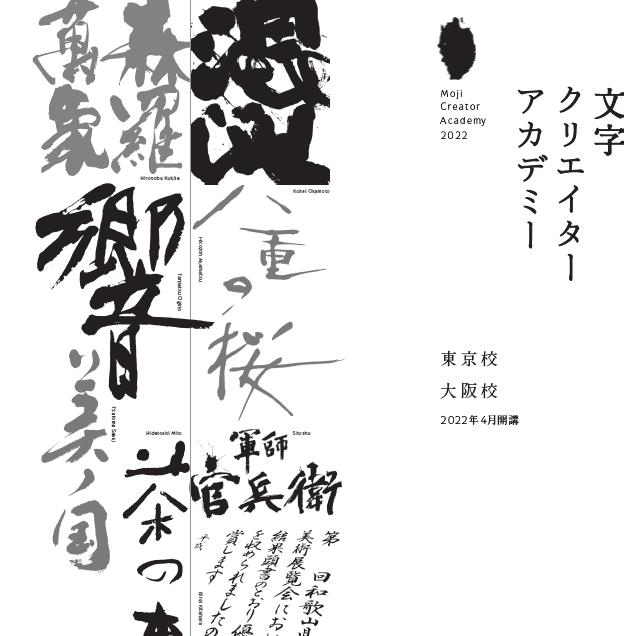 文字
クリエイター
アカデミー
Moji
Creator
Academy
2022
東京校
大阪校
2022年4月開講
森羅
萬象
Hironobu Kukita
Kohei Okamoto
響
八重
の
桜
美ノ国
Hidetoshi Mito
茶の
Shoshu
軍師
官兵衛
第　回和歌山県
美術展覧会にお
結果頭書のとおり優
を収められましたの
賞します
平成